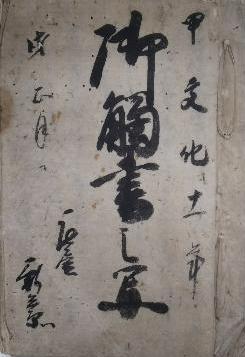 甲文化十一年
御觸書之写
戌正月